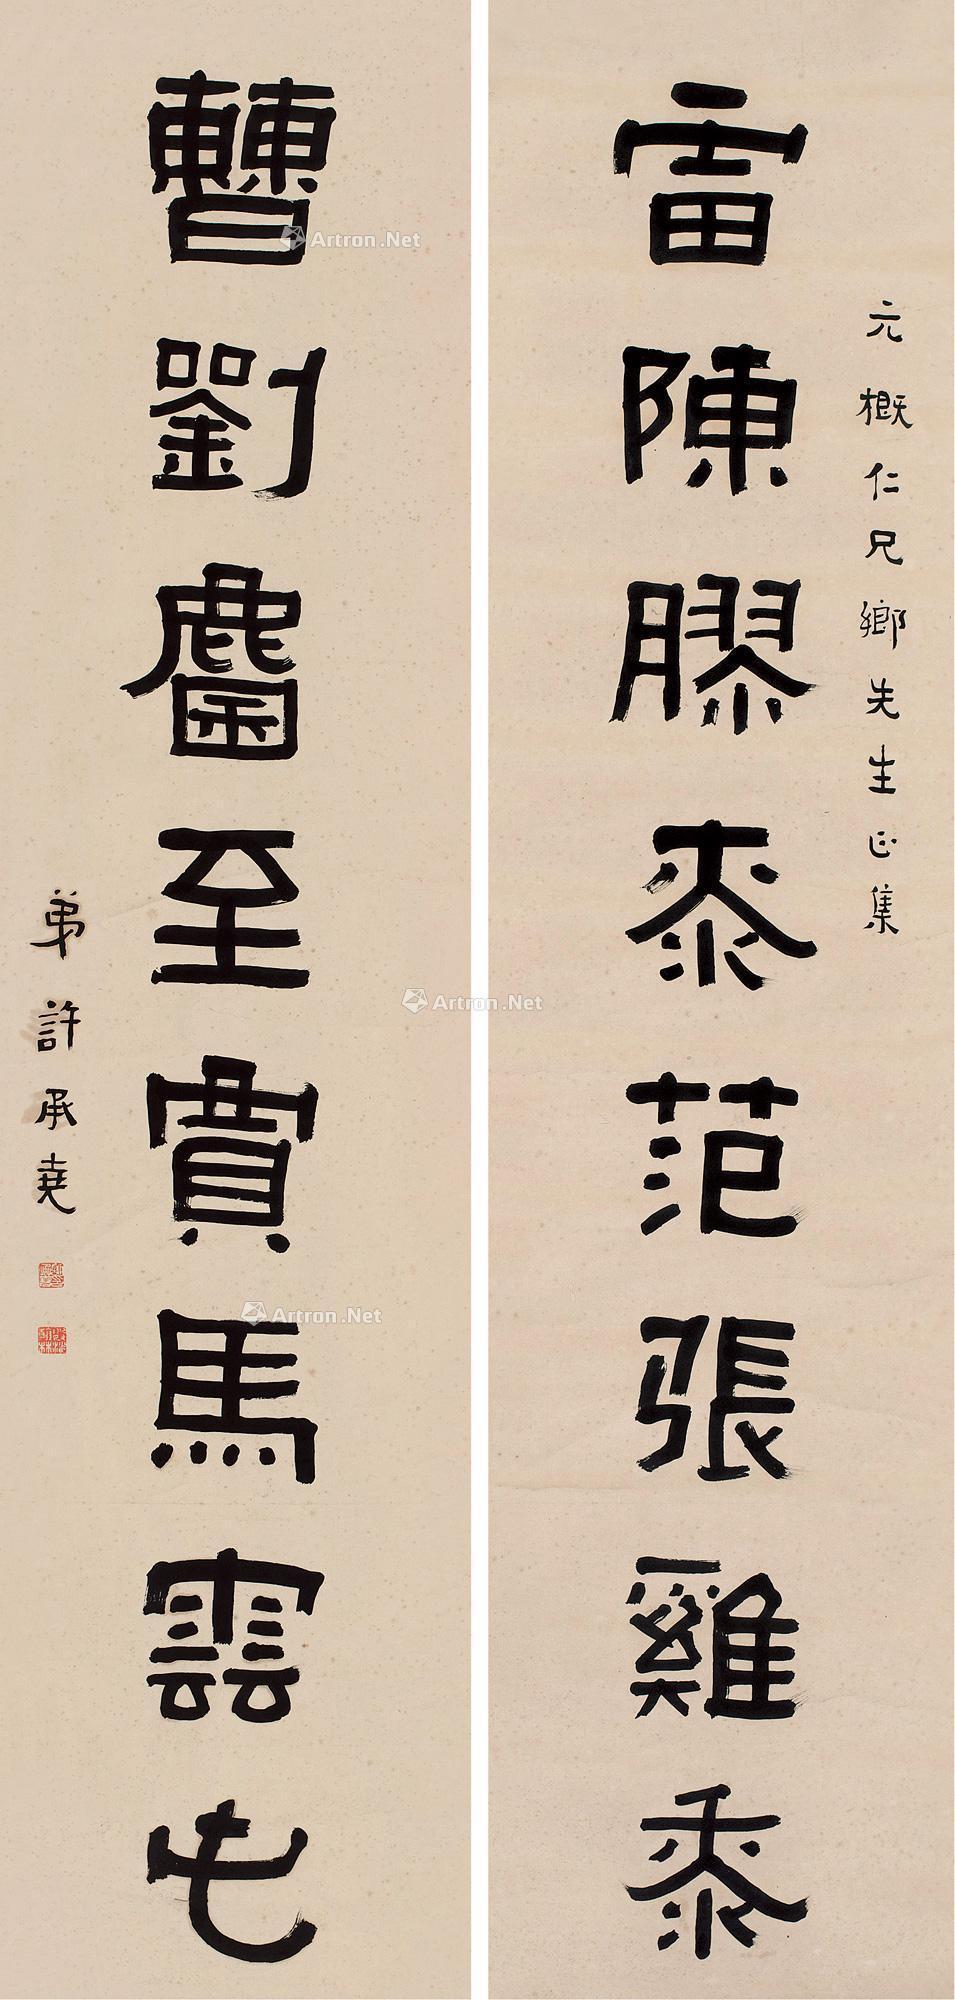 元概仁兄鄉先生正集
雷陳膠桼范張雞黍
曹劉麕至賓馬雲屯
弟許承堯
Artron.Net
Artron.Net
Artron.Net